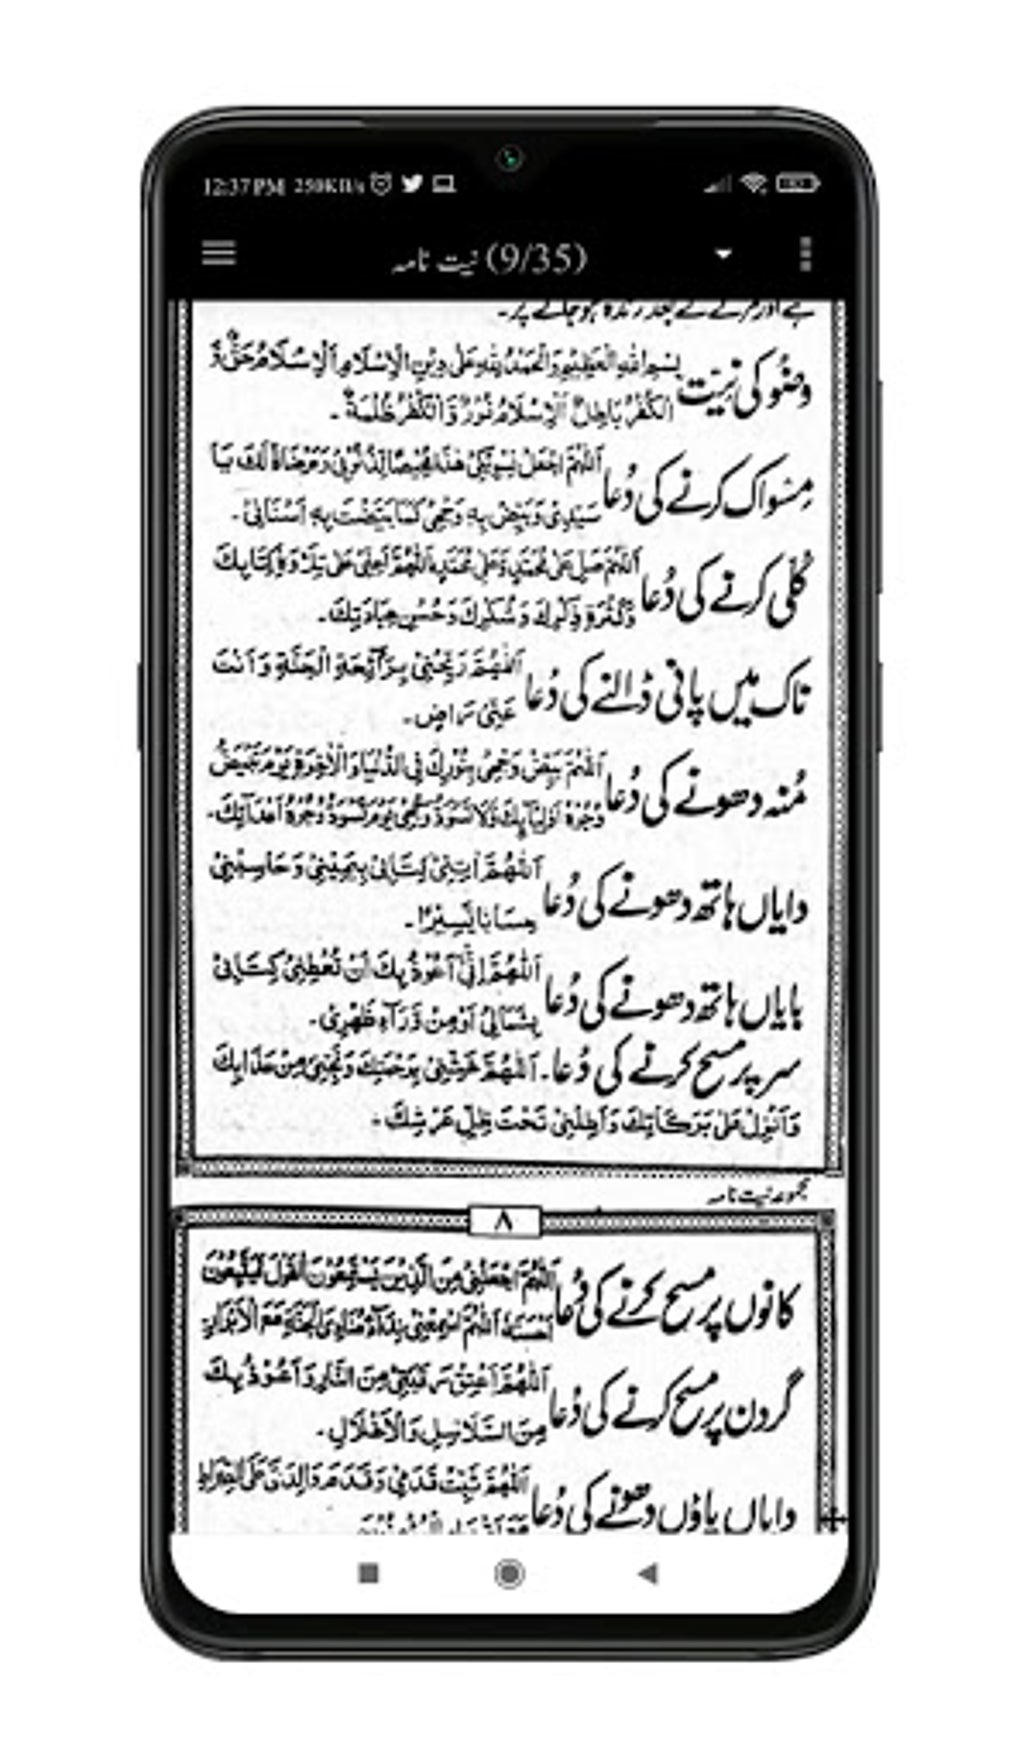 12:37 PM 250KB/s
نیت نامہ (9/35)
ہے اور مرنے کے بعد زندہ ہو جانے پر۔
وضو کی نیت بِسْمِ اللهِ الْعَظِيْمِ وَالْحَمْدُ لِلّٰهِ عَلٰى دِيْنِ الْاِسْلَامِ اَلْاِسْلَامُ حَقٌّ وَّ
الْكُفْرُ بَاطِلٌ اَلْاِسْلَامُ نُوْرٌ وَّالْكُفْرُ ظُلْمَةٌ۔
مسواک کرنے کی دُعا اَللّٰهُمَّ اجْعَلْ تَسْوِيْكِىْ هٰذَا تَمْحِيْصًا لِّذُنُوْبِىْ وَمَرْضَاةً لَّكَ يَا
سَيِّدِىْ وَبَيِّضْ بِهٖ وَجْهِىْ كَمَا بَيَّضْتَ بِهٖ اَسْنَانِىْ۔
کُلّی کرنے کی دُعا اَللّٰهُمَّ صَلِّ عَلٰى مُحَمَّدٍ وَّعَلٰى اَللّٰهُمَّ اَعِنِّىْ عَلٰى كِتَابِكَ
وَكَثْرَةِ ذِكْرِكَ وَشُكْرِكَ وَحُسْنِ عِبَادَتِكَ۔
ناک میں پانی ڈالنے کی دُعا اَللّٰهُمَّ رَيِّحْنِىْ بِرَآئِحَةِ الْجَنَّةِ وَاَنْتَ
عَنِّىْ رَاضٍ۔
مُنہ دھونے کی دُعا اَللّٰهُمَّ بَيِّضْ وَجْهِىْ بِنُوْرِكَ فِى الدُّنْيَا وَالْاٰخِرَةِ يَوْمَ تَبْيَضُّ
وُجُوْهُ اَوْلِيَآئِكَ وَلَا تُسَوِّدْ وَجْهِىْ يَوْمَ تَسْوَدُّ وُجُوْهُ اَعْدَآئِكَ۔
دایاں ہاتھ دھونے کی دُعا اَللّٰهُمَّ اٰتِنِىْ كِتَابِىْ بِيَمِيْنِىْ وَحَاسِبْنِىْ
حِسَابًا يَّسِيْرًا۔
بایاں ہاتھ دھونے کی دُعا اَللّٰهُمَّ اِنِّىْ اَعُوْذُ بِكَ اَنْ تُعْطِيَنِىْ كِتَابِىْ
بِشِمَالِىْ اَوْ مِنْ وَّرَآءِ ظَهْرِىْ۔
سر پر مسح کرنے کی دُعا۔ اَللّٰهُمَّ غَشِّنِىْ بِرَحْمَتِكَ وَنَجِّنِىْ مِنْ عَذَابِكَ
وَاَنْزِلْ عَلَىَّ بَرَكَاتِكَ وَاَظِلَّنِىْ تَحْتَ ظِلِّ عَرْشِكَ۔
مجموعہ نیت نامہ
۸
کانوں پر مسح کرنے کی دُعا اَللّٰهُمَّ اجْعَلْنِىْ مِنَ الَّذِيْنَ يَسْتَمِعُوْنَ الْقَوْلَ فَيَتَّبِعُوْنَ
اَحْسَنَهٗ اَللّٰهُمَّ اسْمِعْنِىْ الْجَنَّةِ مَعَ الْاَبْرَارِ
گردن پر مسح کرنے کی دُعا اَللّٰهُمَّ اَعْتِقْ رَقَبَتِىْ مِنَ النَّارِ وَاَعُوْذُ بِكَ
مِنَ السَّلَاسِلِ وَالْاَغْلَالِ۔
دایاں پاؤں دھونے کی دُعا اَللّٰهُمَّ ثَبِّتْ قَدَمِىْ وَقَدَمَ وَالِدَىَّ عَلَى الصِّرَاطِ